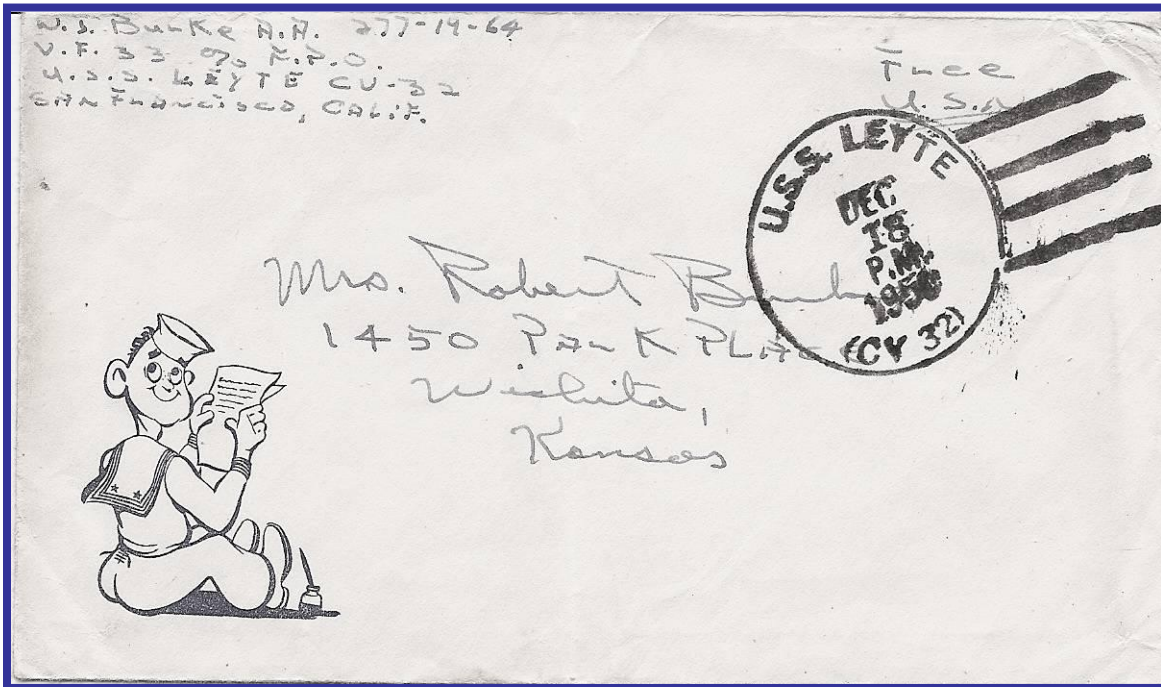 W.S. Burke A.A. 277-19-64
V.F. 33 % F.P.O.
U.S.S. LEYTE CV-32
SAN FRANCISCO, CALIF.
Free
U.S.N
U.S.S. LEYTE
DEC
18
P.M.
1950
(CV 32)
Mrs. Robert Burke
1450 PARK PLACE
Wichita,
Kansas